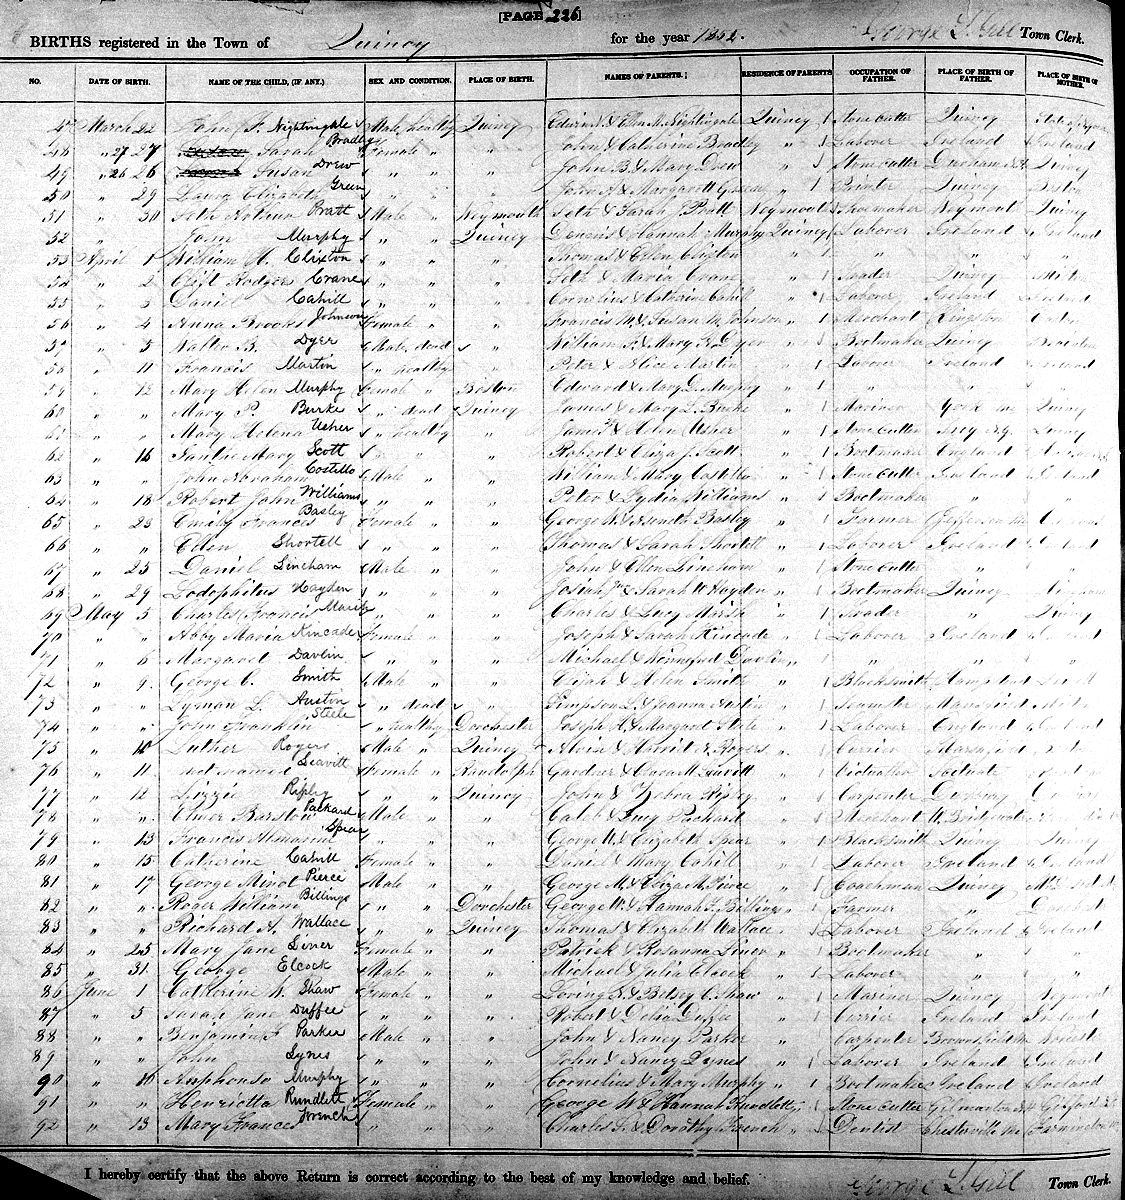 [PAGE 226]
BIRTHS registered in the Town of Quincy for the year 1852. George L. Gill Town Clerk.
NO. DATE OF BIRTH. NAME OF THE CHILD, (IF ANY.) SEX AND CONDITION. PLACE OF BIRTH. NAMES OF PARENTS. RESIDENCE OF PARENTS OCCUPATION OF FATHER. PLACE OF BIRTH OF FATHER PLACE OF BIRTH OF MOTHER.
47 March 22 John F. Nightingale Male, healthy Quincy Edwin N. & Ellen M. Nightingale Quincy Stone Cutter Quincy
48 " 27 27 Sarah Bradley Female " " John & Catherine Bradley " Laborer Ireland Ireland
49 " 26 26 Susan Drew " " " John B. & Mary Drew " Stone cutter Durham N.H. Quincy
50 " 29 Laura Elizabeth Green " " " John A. & Margarett Green " Quincy Boston
51 " 30 Seth Pratt Male " Weymouth Seth & Sarah J. Pratt Weymouth Shoemaker Weymout Quincy
52 " " John Murphy " " " Quincy Dennis & Hannah Murphy Quincy Laborer Ireland Ireland
53 April 1 William H. Clixton " " " " Thomas & Ellen Clixton " " " "
54 " 2 Clift Rodgers Crane " " " " Seth & Maria Crane " Trader Quincy Milton
55 " 3 Daniel Cahill " " " " Cornelius & Catherine Cahill " Laborer Ireland Ireland
56 " 4 Anna Brooks Johnson Female " " Francis M. & Susan M. Johnson " Merchant Kingston
57 " 5 Walter B. Dyer Male, dead " William F. & Mary R. Dyer " Bootmaker Quincy Braintree
58 " 11 Francis Martin " healthy " Peter & Alice Martin " Laborer Ireland Ireland
59 " 12 Mary Helen Murphy Female " Boston Edward & Mary D. Murphy " " " "
60 " " Mary P. Burke " dead Quincy James & Mary L. Burke " Mariner York Me Quincy
61 " " Mary Helena Usher " healthy " James & Helen Usher " Stone Cutter Quincy
62 " 16 Mary Scott " " " Robert & Eliza J. Scott " Bootmaker England
63 " " John Abraham Costello Male " " William & Mary Costello " Stone Cutter Ireland Ireland
64 " 18 Robert John Williams " " " Peter & Lydia Williams " Bootmaker " "
65 " 23 Emily Frances Basley Female " " George W. & Basley " Farmer Jefferson Me
66 " " Ellen Shortell " " " Thomas & Sarah Shortell " Laborer Ireland Ireland
67 " 25 Daniel Lincham Male " " John & Ellen Lincham " Stone Cutter " "
68 " 29 Hayden " " " Josiah Jr. & Sarah W. Hayden " Bootmaker Quincy Hingham
69 May 5 Charles Francis Marsh " " " Charles & Lucy Marsh " Trader " Quincy
70 " " Abby Maria Kincade Female " " Joseph & Sarah Kincade " Laborer Ireland Ireland
71 " 6 Margaret Davlin " " " Michael & Winnefred Davlin " " " "
72 " 9 George C. Smith Male " " Elijah & Helen Smith " Blacksmith
73 " " Lyman L. Austin " dead " Simpson L. & Joanna Austin " Teamster Mansfield
74 " " John Franklin Steele " healthy Dorchester Joseph H. & Margaret Stele " Laborer England Ireland
75 " 10 Luther Rogers Male " Quincy Alvin & Harriet N. Rogers " Currier Marshfield
76 " 11 not named Leavitt Female " Randolph Gardner & Clara M. Leavitt " Victualler Scituate
77 " 12 Lizzie Ripley " " Quincy John & Ripley " Carpenter Duxbury Quincy
78 " " Elmer Barstow Packard Male " " Caleb & Lucy Packard " Merchant W. Bridgewater
79 " 13 Francis Spear " " " George W. & Elizabeth Spear " Blacksmith Quincy Quincy
80 " 15 Catherine Cahill Female " " Daniel & Mary Cahill " Laborer Ireland Ireland
81 " 17 George Minot Pierce Male " " George M. & Eliza M. Pierce " Coachman Quincy
82 " " Roger William Billings " " Dorchester George W. & Hannah F. Billings " Farmer " Dorchester
83 " " Richard H. Wallace " " Quincy Thomas & Elizabeth Wallace " Laborer Ireland Ireland
84 " 25 Mary Jane Liner Female " " Patrick & Rosanna Liner " Bootmaker " "
85 " 31 George Elcock Male " " Michael & Julia Elcock " Laborer " "
86 June 1 Catherine W. Shaw Female " " Loving S. & Betsey C. Shaw " Mariner Quincy Weymouth
87 " 5 Sarah Jane Duffee " " " Robert & Delia Duffee " Currier Ireland Ireland
88 " " Benjamin F. Parker Male " " John & Nancy Parker " Carpenter Brownfield Me
89 " " John Lynes " " " John & Nancy Lynes " Laborer Ireland Ireland
90 " 10 Anphonso Murphy " " " Cornelius & Mary Murphy " Bootmaker Ireland Ireland
91 " " Henrietta Rundlett Female " " George W. & Hannah Rundlett " Stone Cutter Gilmanton N.H. Gilford N.H.
92 " 13 Mary Frances French " " " Charles F. & Dorothy French " Dentist Chesterville Me Farmington Me
I hereby certify that the above Return is correct according to the best of my knowledge and belief. George L. Gill Town Clerk.